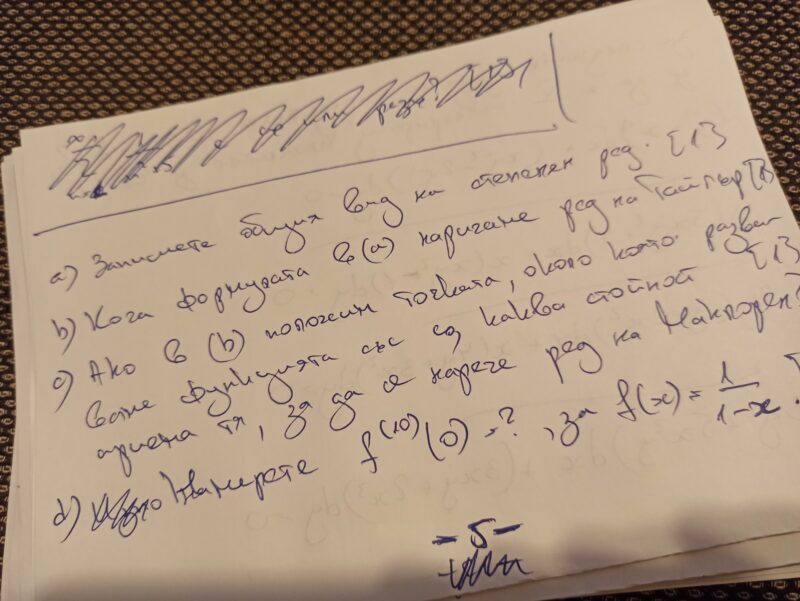 a) Запишете общия вид на степенен ред. [1]
b) Кога формулата в (a) наричаме ред на Тайлър [1]
c) Ако в (b) положим точката, около която разви-
ваме функцията със c, каква стойност [1]
приема тя, за да се нарече ред на Маклорен?
d) Намерете f⁽¹⁰⁾(0) = ?, за f(x) = 1/(1-x). [
- 5 -